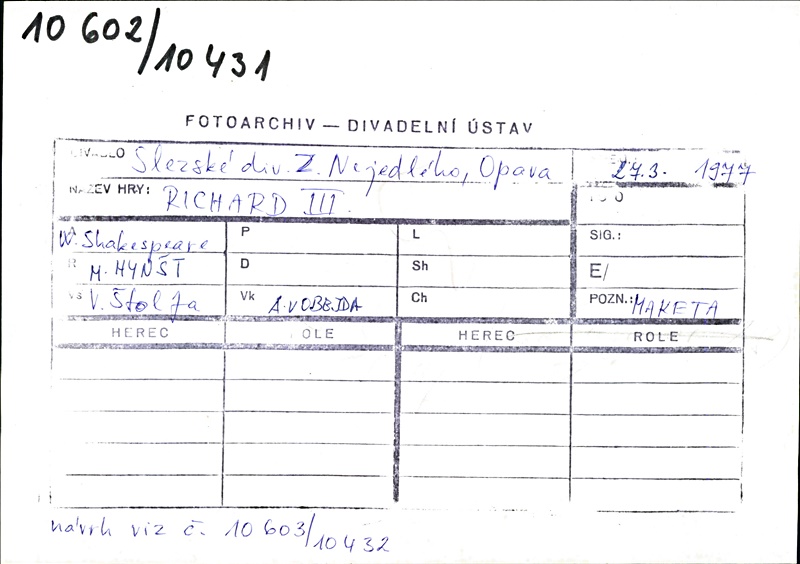 10 602/10 431
FOTOARCHIV — DIVADELNÍ ÚSTAV
DIVADLO Slezské div. Z. Nejedlého, Opava 27.3. 1977
NÁZEV HRY: RICHARD III.
A W. Shakespeare P L SIG.:
R M. HYNŠT D Sh E/
VS V. Štolfa Vk A. VOBEJDA Ch POZN.: MAKETA
HEREC ROLE HEREC ROLE
návrh viz č. 10 603/10 432